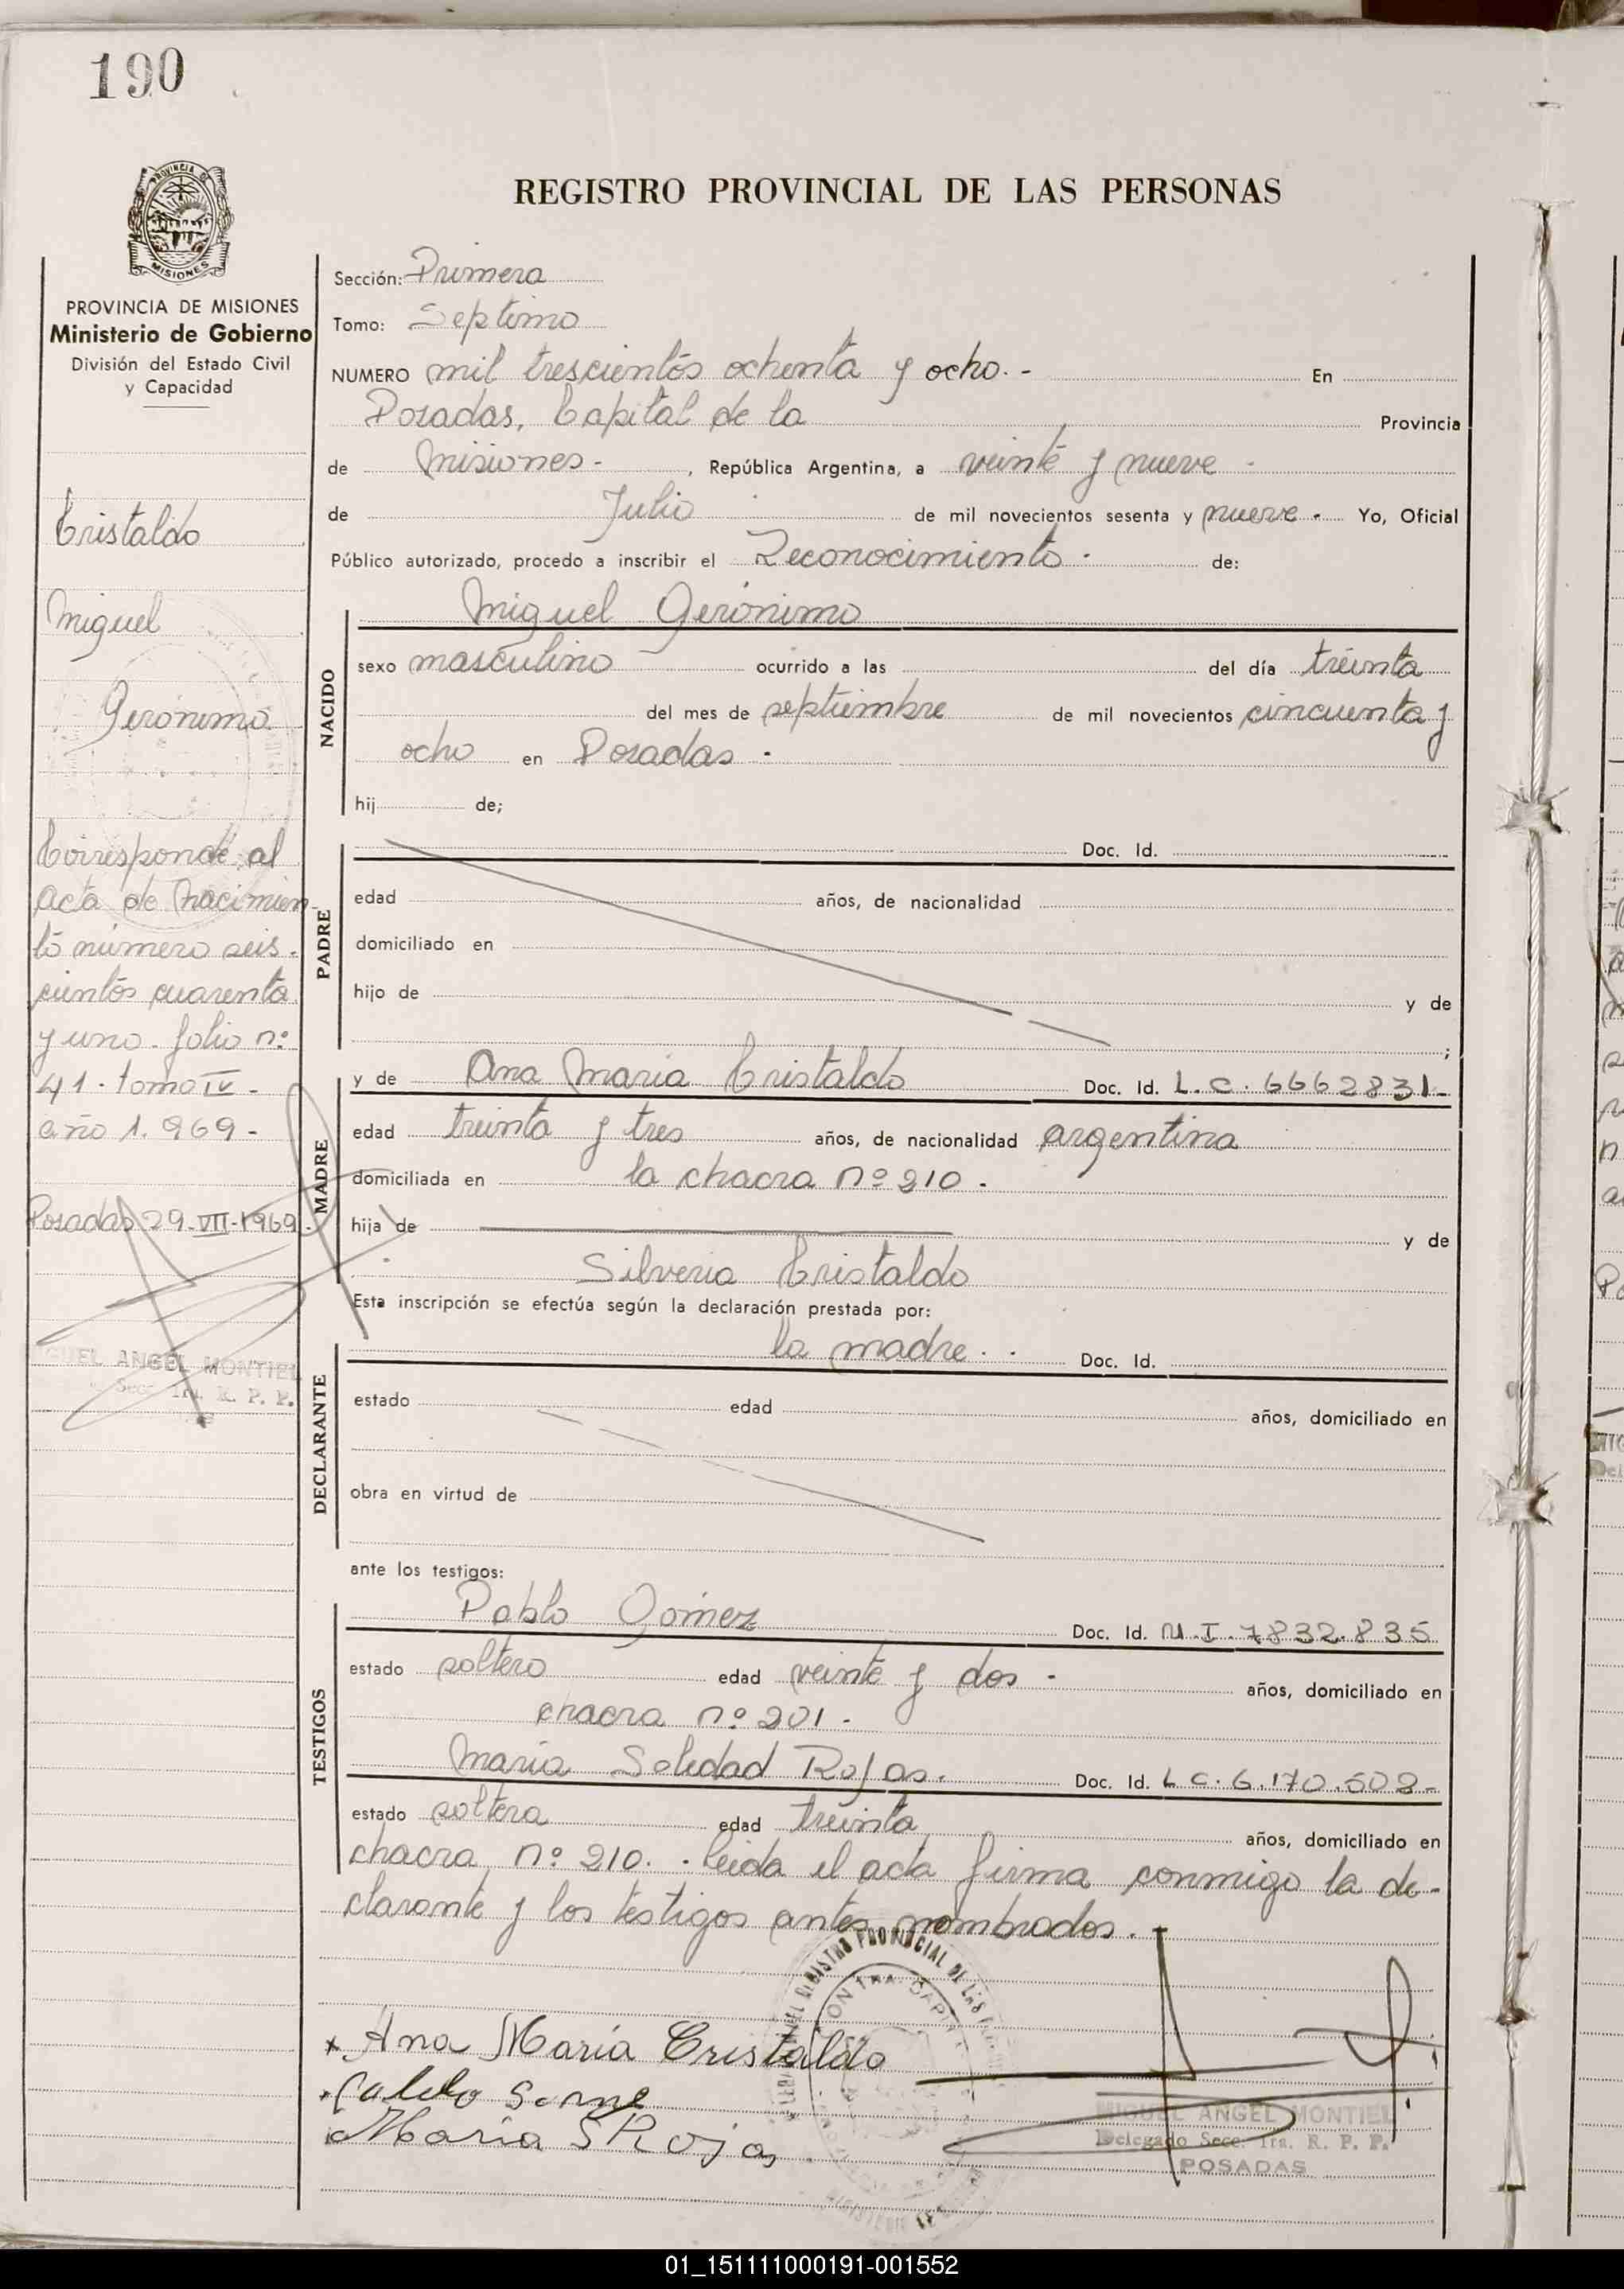 190
PROVINCIA DE
MISIONES
PROVINCIA DE MISIONES
Ministerio de Gobierno
División del Estado Civil
y Capacidad
Cristaldo
Miguel
Gerónimo
Corresponde al
acta de nacimien-
to número seis-
cientos cuarenta
y uno. folio nº
41. tomo IV -
año 1.969 -
Posadas 29-VII-1969.
GUEL ANGEL MONTIEL
Secc. 1ra. R. P. P.
REGISTRO PROVINCIAL DE LAS PERSONAS
Sección: Primera
Tomo: Septimo
NUMERO mil trescientos ochenta y ocho. - En
Posadas, Capital de la Provincia
de Misiones - , República Argentina, a veinte y nueve -
de Julio de mil novecientos sesenta y nueve - Yo, Oficial
Público autorizado, procedo a inscribir el Reconocimiento - de:
NACIDO
Miguel Gerónimo
sexo masculino ocurrido a las del día treinta
del mes de septiembre de mil novecientos cincuenta y
ocho en Posadas -
hij de;
PADRE
Doc. Id.
edad años, de nacionalidad
domiciliado en
hijo de y de
;
MADRE
y de Ana Maria Cristaldo Doc. Id. L. C. 6662831-
edad treinta y tres años, de nacionalidad argentina
domiciliada en la chacra nº 210 -
hija de y de
Silveria Cristaldo
Esta inscripción se efectúa según la declaración prestada por:
DECLARANTE
la madre. . Doc. Id.
estado edad años, domiciliado en
obra en virtud de
ante los testigos:
TESTIGOS
Pablo Gómez Doc. Id. M.I. 7832.835
estado soltero edad veinte y dos - años, domiciliado en
chacra nº 201 -
Maria Soledad Rojas. Doc. Id. L C. 6.170.502-
estado soltera edad treinta años, domiciliado en
chacra nº 210. - leida el acta firma conmigo la de-
clarante y los testigos antes nombrados.
REGISTRO PROVINCIAL DE LAS
x Ana María Cristaldo
María S Rojas
MIGUEL ANGEL MONTIEL
Delegado Secc. 1ra. R. P. P.
POSADAS
01_151111000191-001552